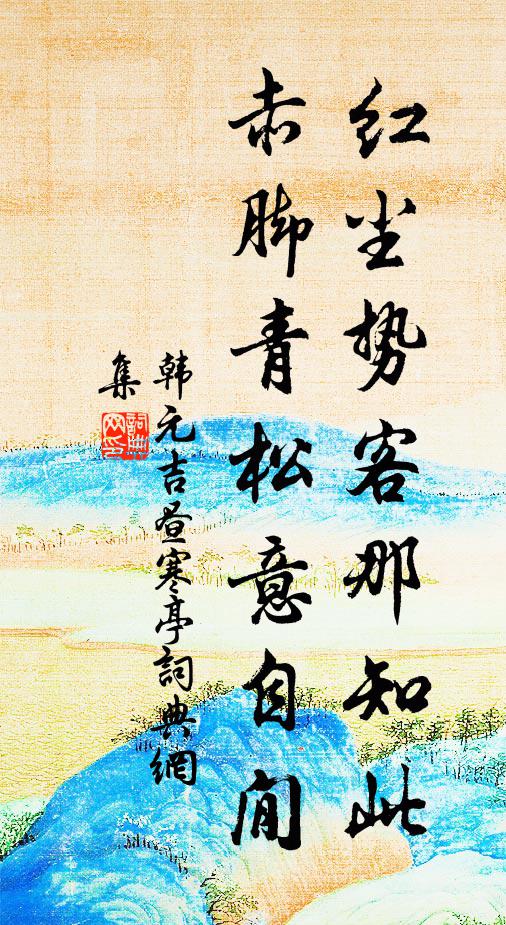 红尘势客那知此
赤脚青松意自闲
韩元吉昼寒亭詞典網
集
詞典网印